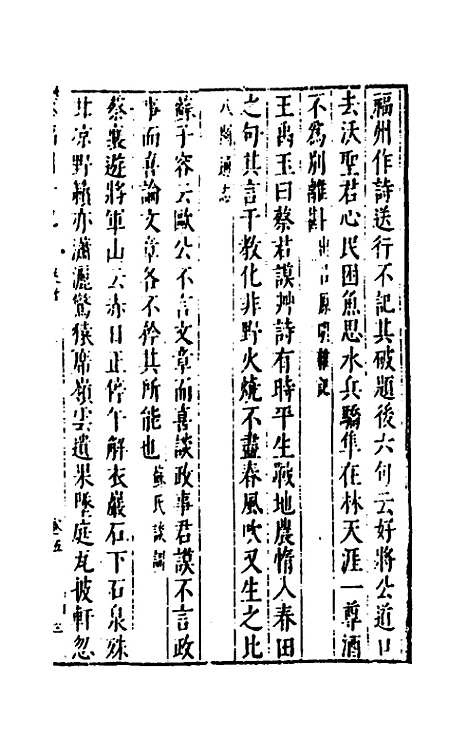 福州作詩送行不記其破題後六句云好將公道口
去沃聖君心民困魚思水兵驕隼在林天涯一尊酒
不為別離斟出呂原明雜記
王禹玉曰蔡君謨艸詩有時平生戰地農惰入春田
之句其言干教化非野火燒不盡春風吹又生之比
八閩通志
蘇子容云歐公不言文章而喜談政事君謨不言政
事而喜論文章各不矜其所能也蘇氏談訓
蔡襄遊將軍山云赤日正停午解衣巖石下石泉殊
甘涼野籟亦瀟灑驚猿席嶺雲遺果墜庭瓦披軒忽
卷五